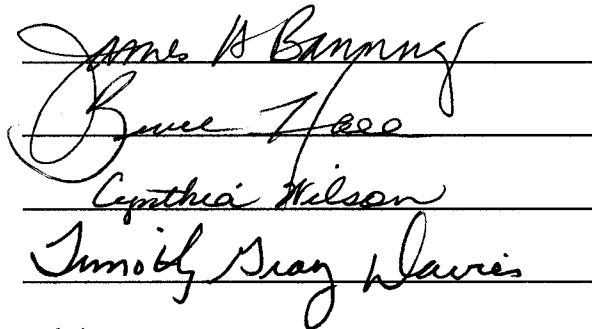 James H Banning
Bruce Hall
Cynthia Wilson
Timothy Gray Davies